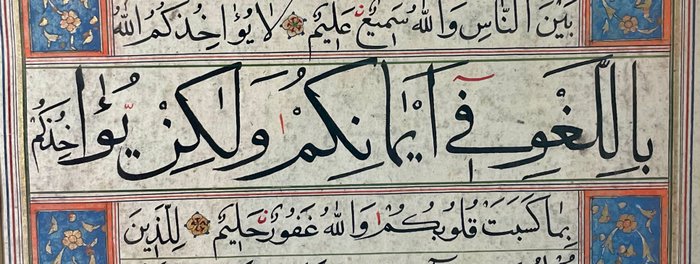 بَيْنَ النَّاسِ وَاللّٰهُ سَمِيعٌ عَلِيمٌ لَا يُؤَاخِذُكُمُ اللّٰهُ
بِاللَّغْوِ فِي أَيْمَانِكُمْ وَلَٰكِنْ يُؤَاخِذُكُمْ
بِمَا كَسَبَتْ قُلُوبُكُمْ وَاللّٰهُ غَفُورٌ حَلِيمٌ لِلَّذِينَ